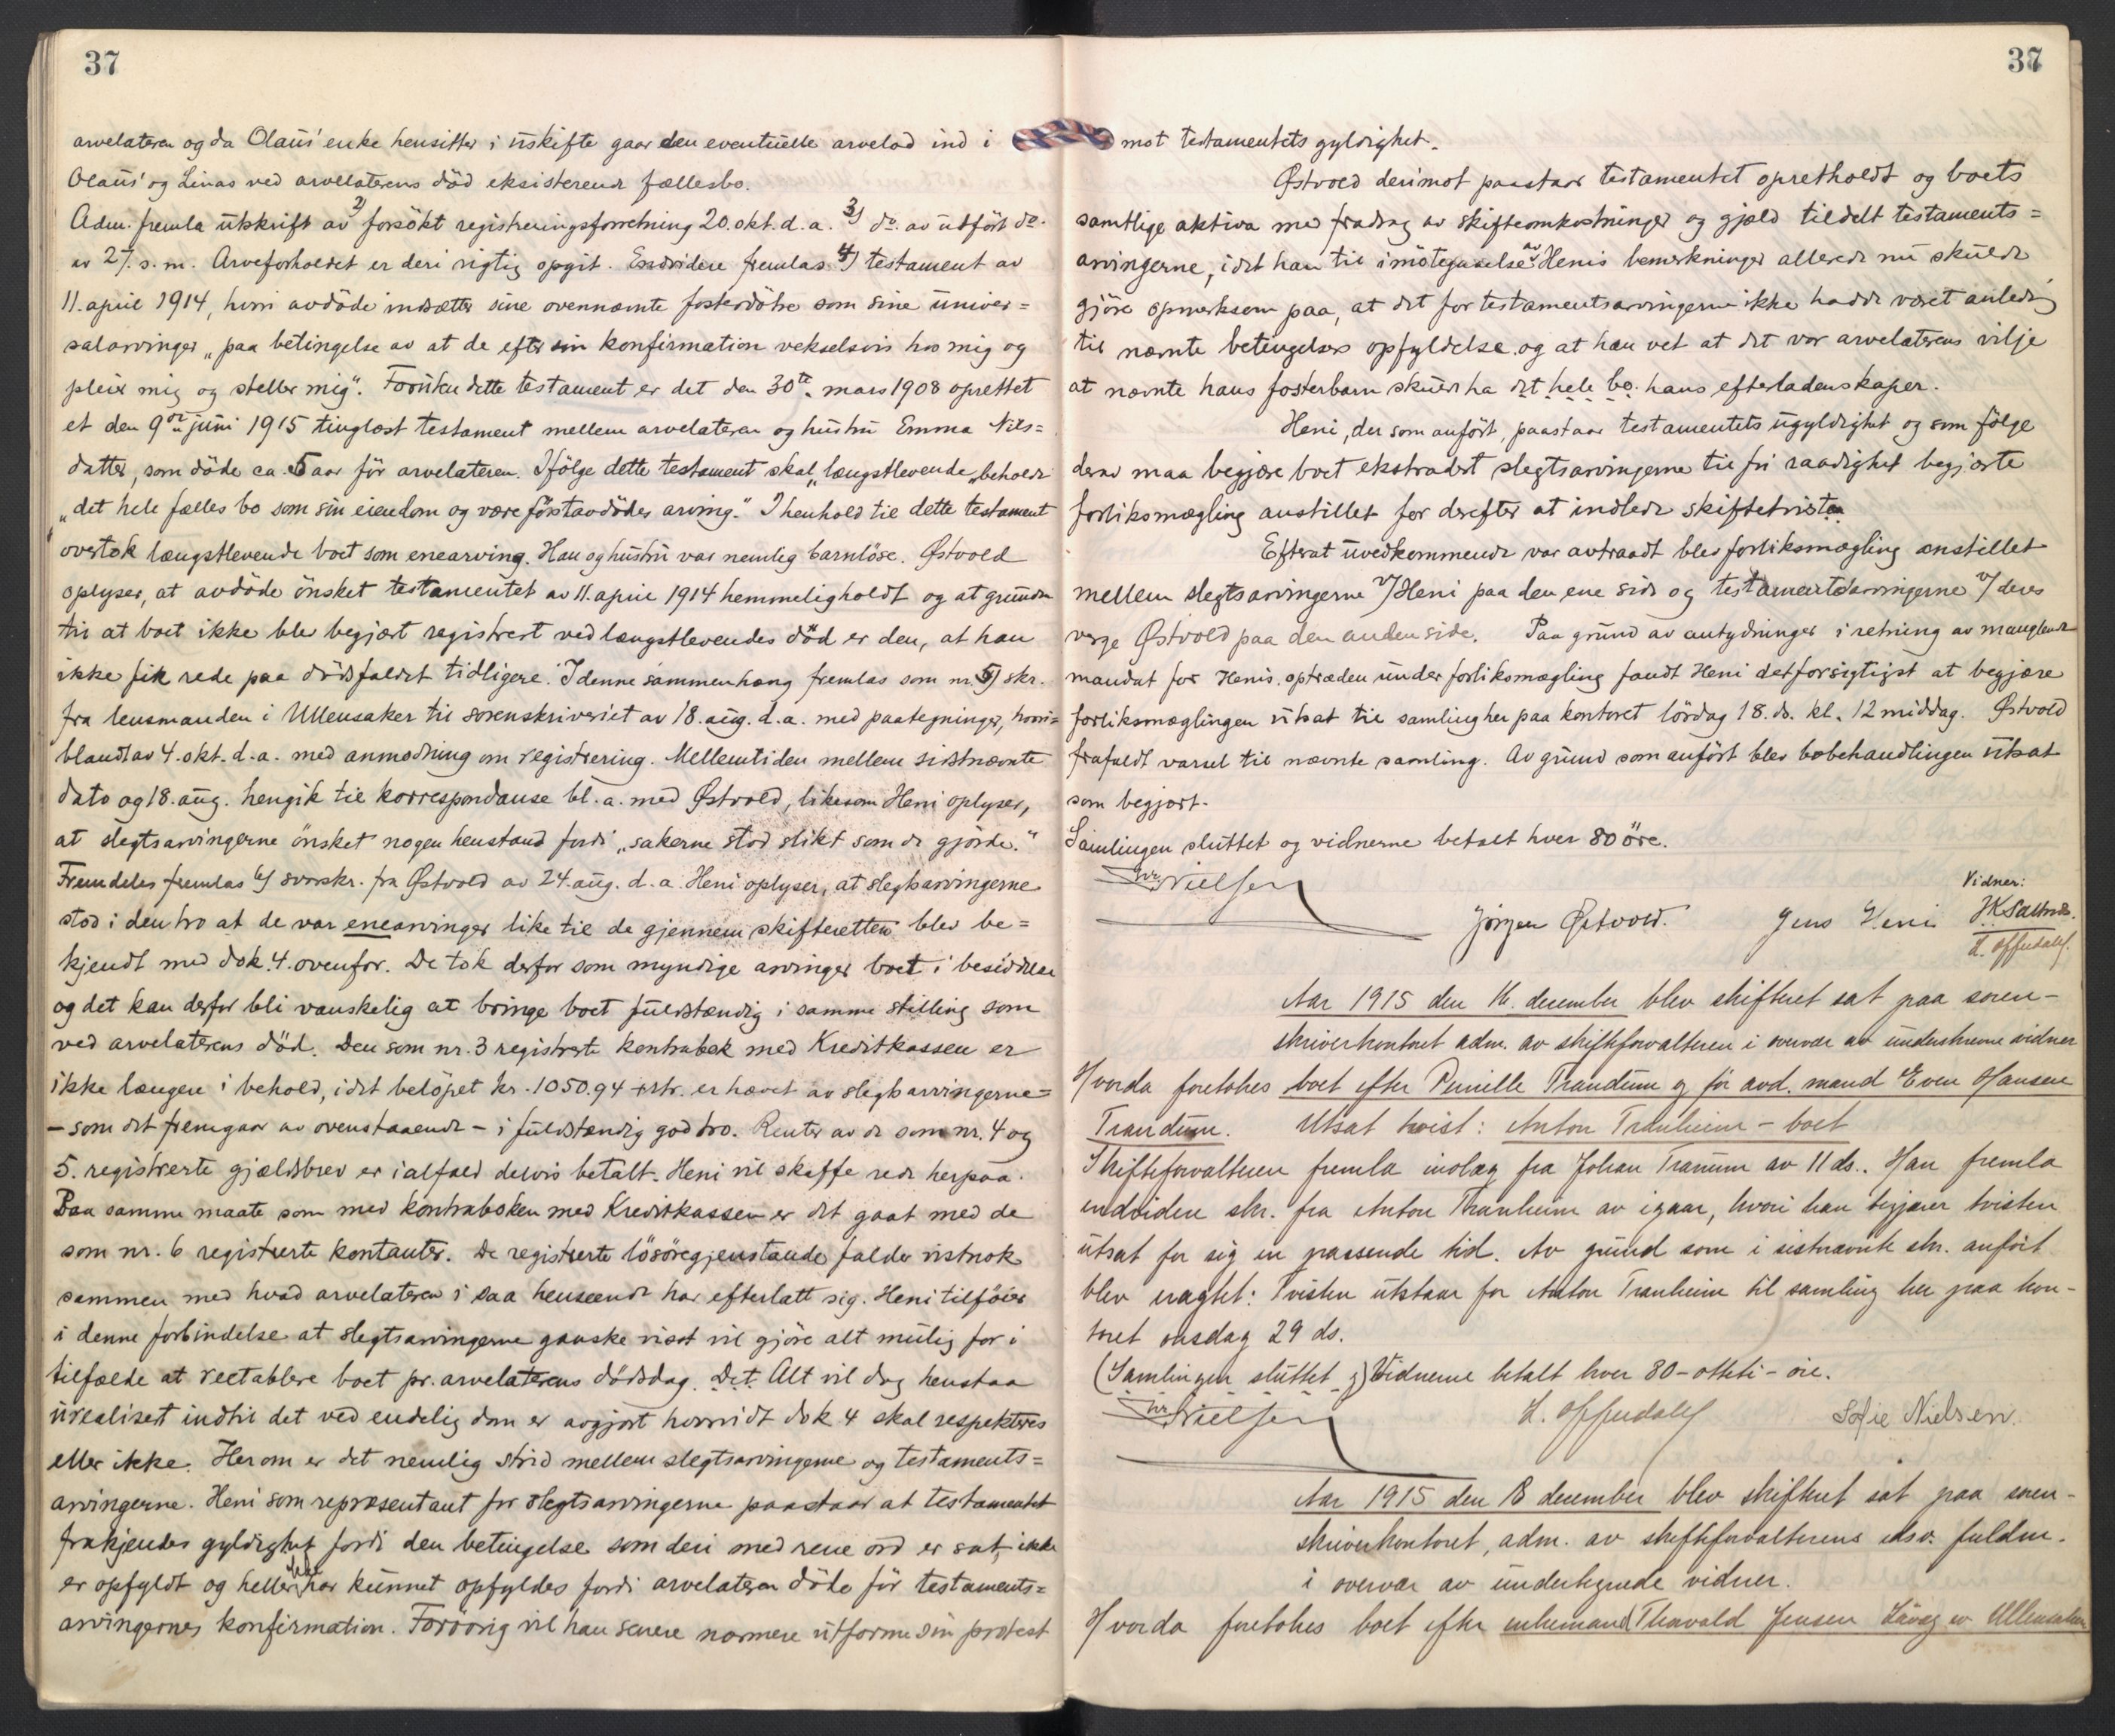 37
arvelateren og da Olaus' enke hensitter i uskifte gaar den eventuelle arvelod ind i
Olaus' og Linas ved arvelaterens död eksisterende fællesbo.
Adm. fremla utskrift av 2) forsökt registreringsforretning 20. okt. d. a. 3) do. av utfört do.
av 27. s. m. Arveforholdet er deri rigtig opgit. Endvidere fremlas 4) testament av
11. april 1914, hvori avdöde indsætter sine ovennævnte fosterdötre som sine univer=
salarvinger „paa betingelse av at de efter sin konfirmation vekselvis hos mig og
pleier mig og steller mig". Foruten dette testament er det den 30te mars 1908 oprettet
et den 9de juni 1915 tinglæst testament mellem arvelateren og hustru Emma Nils=
datter, som döde ca. 5 aar för arvelateren. Ifölge dette testament skal „længstlevende „beholde
„det hele fælles bo som sin eiendom og være förstavdödes arving." I henhold til dette testament
overtok længstlevende boet som enearving. Han og hustru var nemlig barnlöse. Østvold
oplyser, at avdöde önsket testamentet av 11. april 1914 hemmeligholdt og at grunden
til at boet ikke blev begjært registrert ved længstlevendes död er den, at han
ikke fik rede paa dödsfaldet tidligere. I denne sammenhæng fremlas som nr. 5) skr.
fra lensmanden i Ullensaker til sorenskriveriet av 18. aug. d. a. med paategninger, hvori=
blandt av 4. okt. d. a. med anmodning om registrering. Mellemtiden mellem sistnævnte
dato og 18. aug. hengik til korrespondanse bl. a. med Østvold, likesom Heni oplyser,
at slegtsarvingerne önsket nogen henstand fordi „sakerne stod slikt som de gjorde."
Fremdeles fremlas 6) svarskr. fra Østvold av 24. aug. d. a. Heni oplyser, at slegtsarvingerne
stod i den tro at de var enearvinger like til de gjennem skifteretten blev be=
kjendt med dok. 4. ovenfor. De tok derfor som myndige arvinger boet i besiddelse
og det kan derfor bli vanskelig at bringe boet fuldstændig i samme stilling som
ved arvelaterens död. Den som nr. 3 registrerte kontrabok med Kreditkassen er
ikke længere i behold, idet belöpet kr. 1050.94 + rtr. er hævet av slegtsarvingerne=
– som det fremgaar av ovenstaaende – i fuldstændig god tro. Renter av de som nr. 4 og
5. registrerte gjældsbrev er ialfald delvis betalt. Heni vil skaffe rede herpaa.
Paa samme maate som med kontraboken med Kreditkassen er det gaat med de
som nr. 6 registrerte kontanter. De registrerte lösöregjenstande falder vistnok
sammen med hvad arvelateren i saa henseende har efterlatt sig. Heni tilföier
i denne forbindelse at slegtsarvingerne ganske visst vil gjöre alt mulig for i
tilfælde at reetablere boet pr. arvelaterens dödsdag. Det. Alt vil dog henstaa
urealisert indtil det ved endelig dom er avgjort hvorvidt dok 4 skal respekteres
eller ikke. Herom er det nemlig strid mellem slegtsarvingerne og testaments=
arvingerne. Heni som repræsentant for slegtsarvingerne paastaar at testamentet
frakjendes gyldighet fordi den betingelse som deri med rene ord er sat, ikke
er opfyldt og heller ikke har kunnet opfyldes fordi arvelateren döde för testaments=
arvingernes konfirmation. Forövrig vil han senere nærmere utforme sin protest
37
mot testamentets gyldighet.
Østvold derimot paastaar testamentet opretholdt og boets
samtlige aktiva med fradrag av skifteomkostninger og gjæld tildelt testaments=
arvingerne, idet han til imötegaaelse av Henis bemerkninger allerede nu skulde
gjöre opmerksom paa, at det for testamentsarvingerne ikke hadde været anledning
til nævnte betingelses opfyldelse og at han vet at det var arvelaterens vilje
at nævnte hans fosterbarn skulde ha det hele bo. hans efterladenskaper.
Heni, der som anfört, paastaar testamentets ugyldighet og som fölge
derav maa begjære boet ekstradert slegtsarvingerne til fri raadighet begjærte
forliksmægling anstillet for derefter at indlede skiftetvisten
Efterat uvedkommende var avtraadt blev forliksmægling anstillet
mellem slegtsarvingerne v/ Heni paa den ene side og testamentsarvingerne v/ deres
verge Østvold paa den anden side. Paa grund av antydninger i retning av manglende
mandat for Henis optræden under forliksmægling fandt Heni det forsigtigst at begjære
forliksmæglingen utsat til samling her paa kontoret lördag 18. ds. kl. 12 middag. Østvold
frafaldt varsel til nævnte samling. Av grund som anfört blev bobehandlingen utsat
som begjært.
Samlingen sluttet og vidnerne betalt hver 80 öre.
Nielsen
Jörgen Østvold. Jens Heni
Vidner:
L. Offendahl.
Aar 1915 den 16. december blev skifteret sat paa soren-
skriverkontoret adm. av skifteforvalteren i overvær av underskrevne vidner
Hvorda foretokes boet efter Pernille Trandum og för avd. mand Even Hansen
Trandum. Utsat tvist: Anton Tranheim – boet
Skifteforvalteren fremla indlæg fra Johan Tranum av 11 ds.. Han fremla
endvidere skr. fra Anton Tranheim av igaar, hvori han begjærer tvisten
utsat for sig en passende tid. Av grund som i sistnævnte skr. anfört
blev eragtet: Tvisten utstaar for Anton Tranheim til samling her paa kon-
toret onsdag 29 ds.
(Samlingen sluttet og) Vidnerne betalt hver 80 – otteti – öre.
Nielsen L. Offendahl Sofie Nielsen.
Aar 1915 den 18 december blev skifteret sat paa soren-
skriverkontoret, adm. av skifteforvalterens edsv. fuldm.
i overvær av undertegnede vidner.
Hvorda foretokes boet efter enkemand Thorvald Jensen av Ullensaker